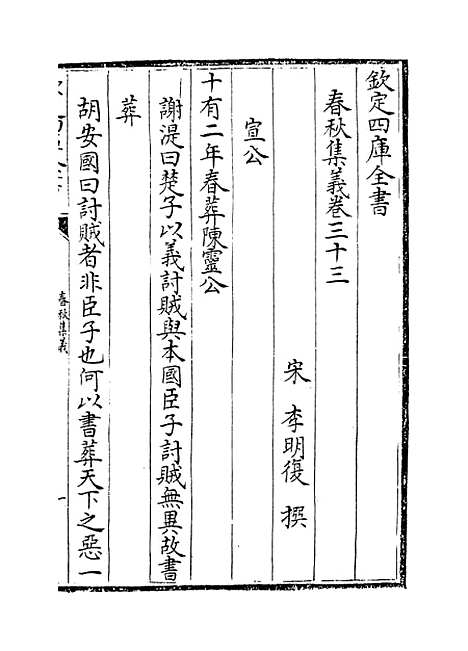 欽定四庫全書
春秋集義卷三十三
宋 李明復 撰
宣公
十有二年春葬陳靈公
謝湜曰楚子以義討賊與本國臣子討賊無異故書
葬
胡安國曰討賊者非臣子也何以書葬天下之惡一
春秋集義
一